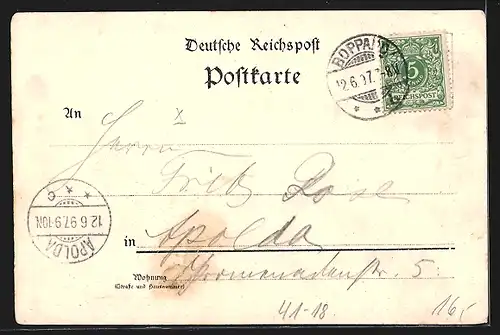 Deutsche Reichspost
Postkarte
BOPPARD
12.6.97.
5
REICHSPOST
An
x
Herrn
Fritz Rose
in Apolda
Promenadenstr. 5.
Wohnung
(Straße und Hausnummer)
APOLDA
12.6.97.9-10N.
* * c
41-18
16,-